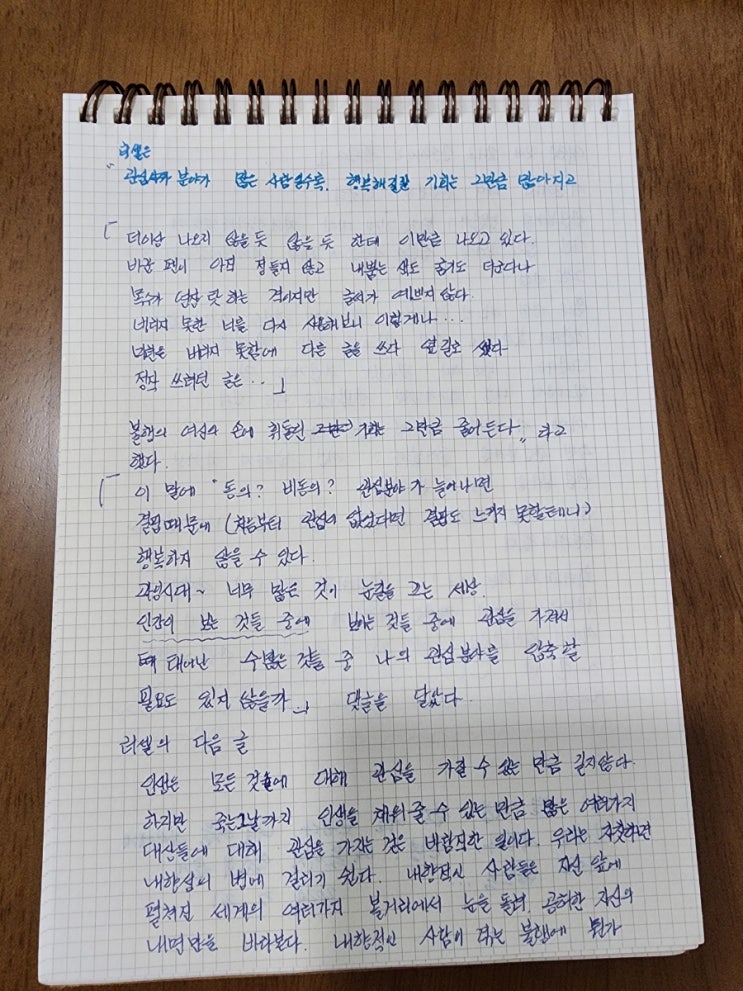 러셀은
"관심분야가 많은 사람일수록, 행복해질 기회는 그만큼 많아지고
「
더이상 나오지 않을 듯 않을 듯 한데 이만큼 나오고 있다.
바꾼 펜이 아직 정들지 않고 내뿜는 색도 굵기도 더군다나
목수가 연장 탓 하는 격이지만 글씨가 예쁘지 않다.
버리지 못한 너를 다시 사용해보니 이렇게나...
미련은 버리지 못함에 다른 글을 쓰다 옆길로 샜다
정작 쓰려던 글은... 」
불행의 여신의 손에 휘둘릴 기회는 그만큼 줄어든다" 라고
했다.
「 이 말에 "동의? 비동의? 관심분야가 늘어나면
결핍때문에 (처음부터 관심이 없었다면 결핍도 느끼지 못할테니)
행복하지 않을 수 있다.
과잉시대~ 너무 많은 것이 눈길을 끄는 세상.
인간이 보는 것들 중에 보이는 것들 중에 관심을 가져서
태어난 수많은 것들 중 나의 관심분야를 압축할
필요도 있지 않을까 」 댓글을 달았다.
러셀의 다음 글
인생은 모든 것에 대해 관심을 가질 수 있는 만큼 길지않다.
하지만 죽는그날까지 인생을 채워줄 수 있는 만큼 많은 여러가지
대상들에 대해 관심을 가지는 것은 바람직한 일이다. 우리는 자칫하면
내향성의 병에 걸리기 쉽다. 내향적인 사람들은 자신 앞에
펼쳐진 세계의 여러가지 볼거리에서 눈을 돌려, 공허한 자신의
내면만을 바라본다. 내향적인 사람이 겪는 불행에 뭔가